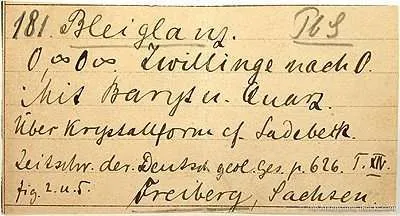 181. Bleiglanz. PbS
O, ∞O∞. Zwillinge nach O.
Mit Baryt u. Quarz.
Über Krystallform cf. Sadebeck.
Zeitschr. der. Deutsch. geol. Ges. p. 626. T. XIV.
fig. 2. u. 5. Freiberg, Sachsen.